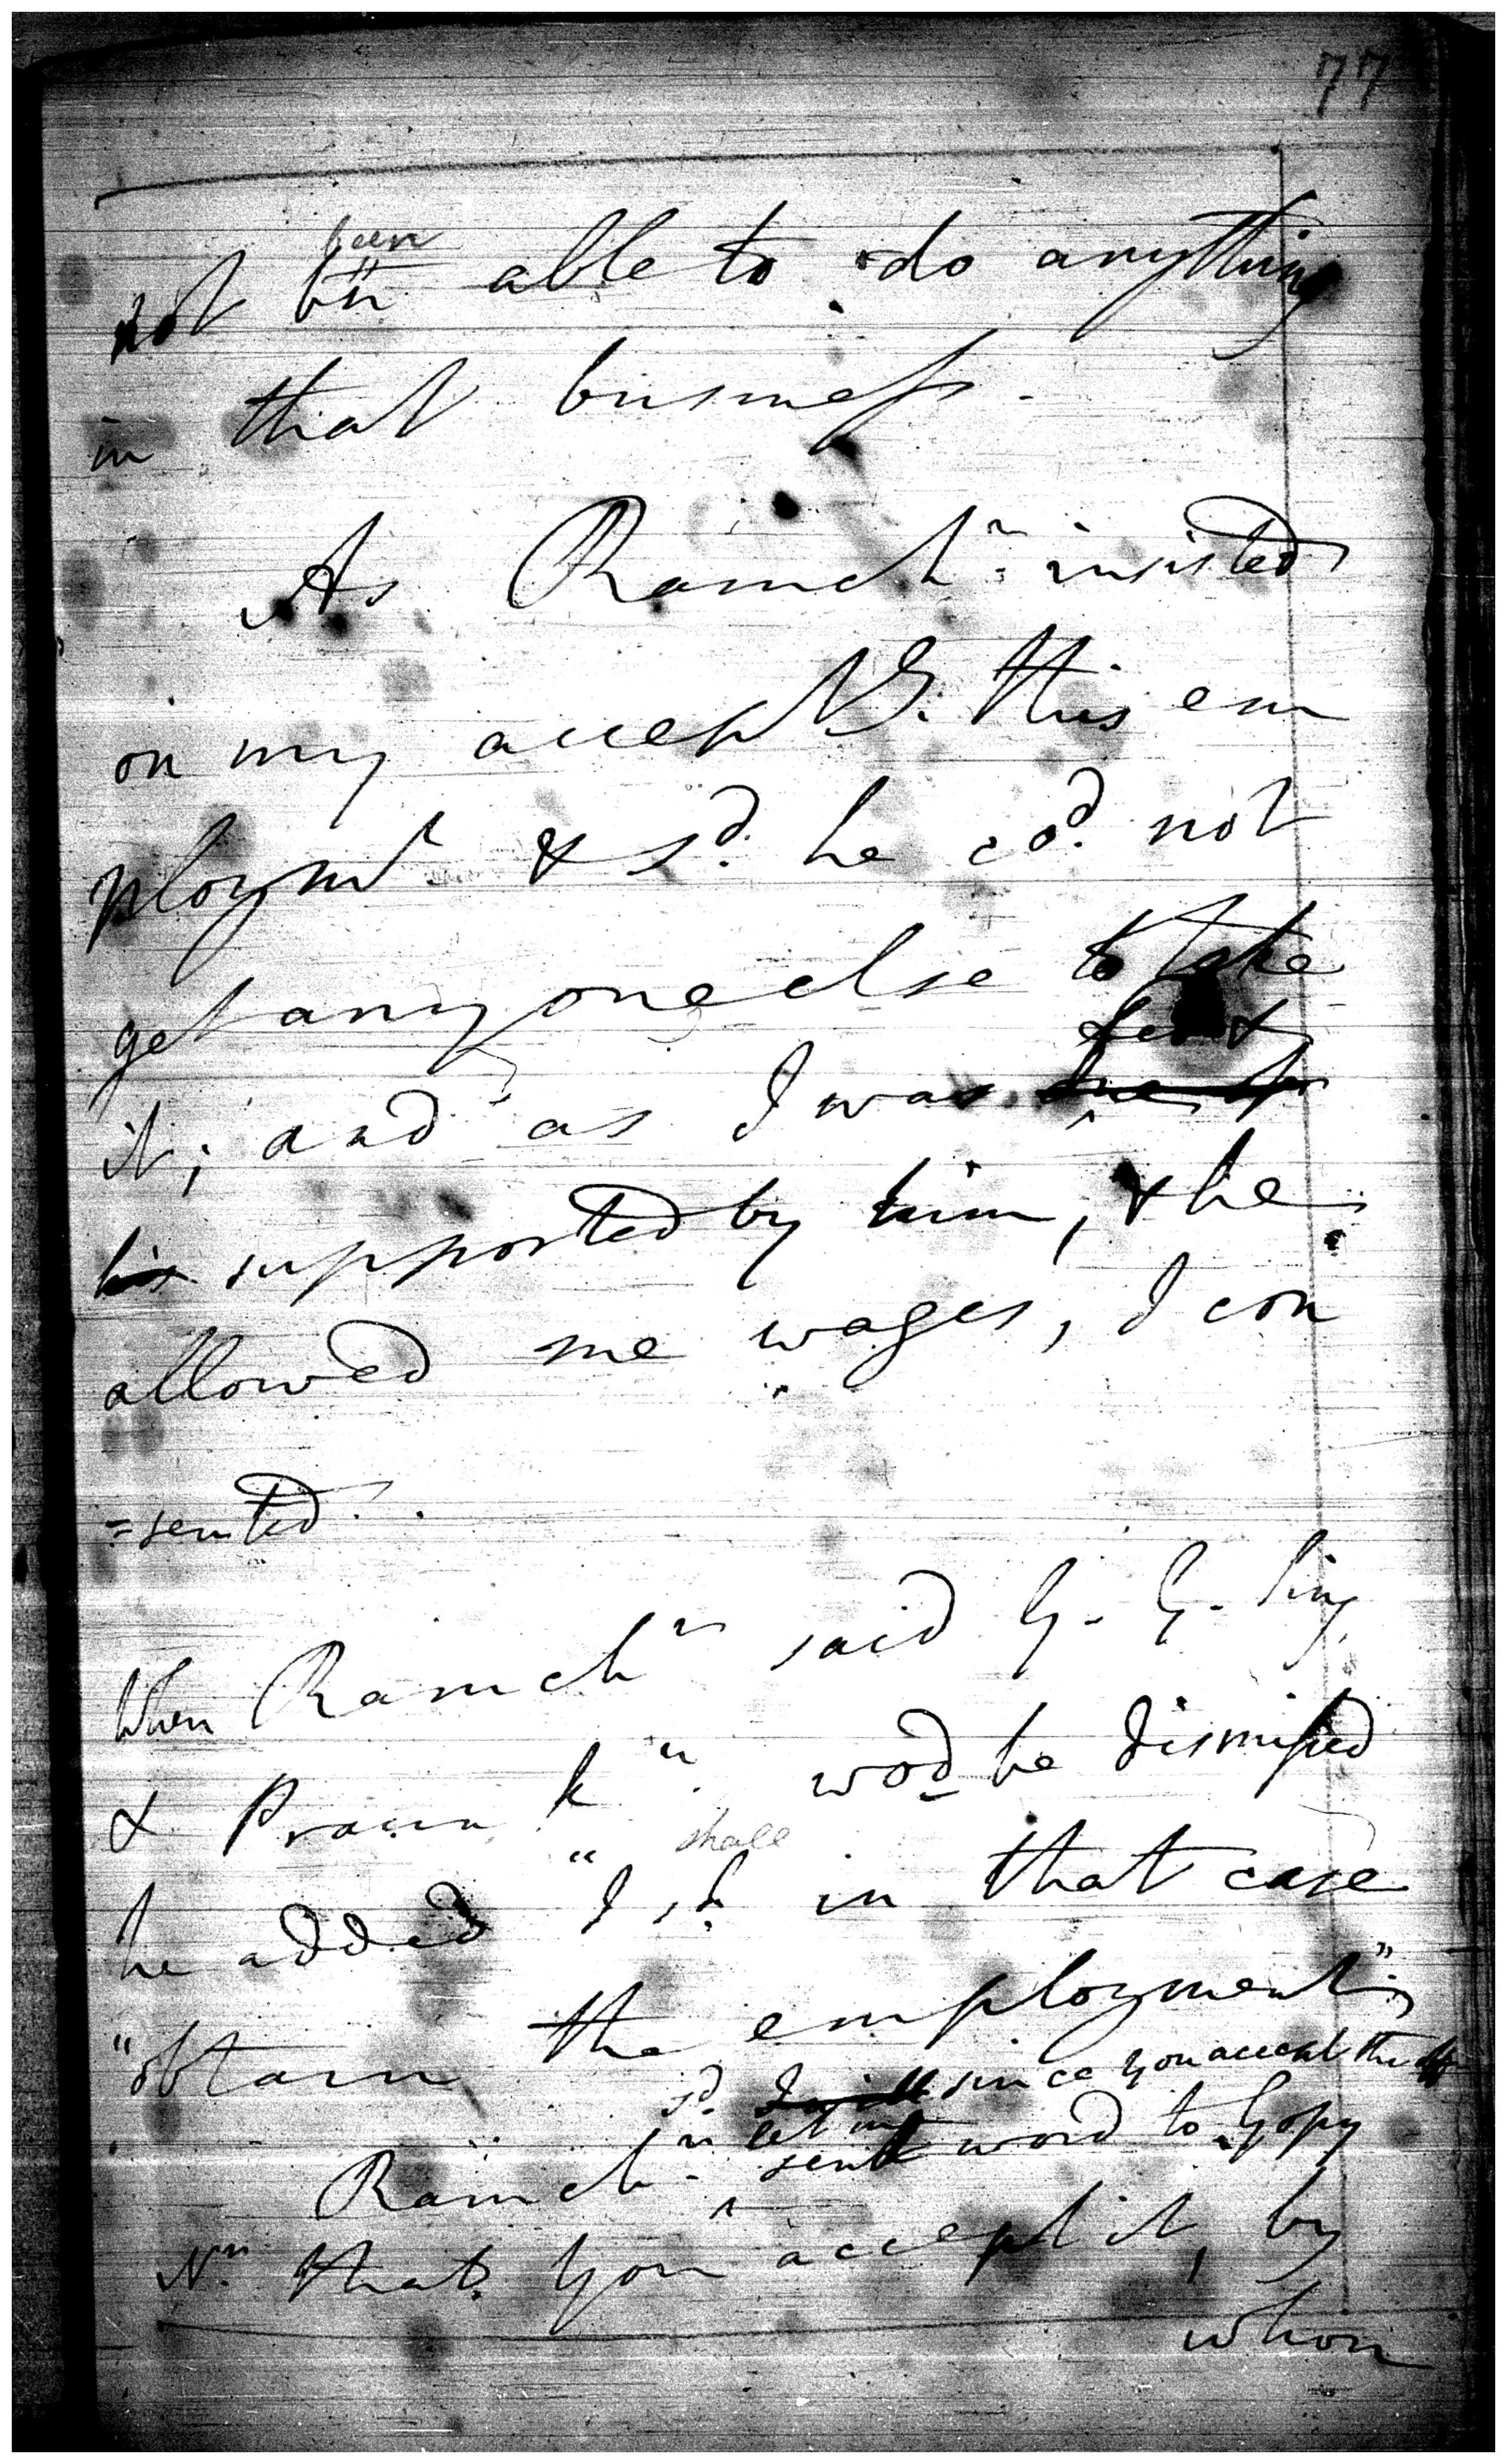 77
been
not bn able to do anything
in that business.
As Ramchn: insisted
on my accept g. this em
ploymt & sd. he cod. not
get any one else to take
it; and as I was
supported by him, & he
allowed me wages, I con
=sented.
When Ramchn said G. G. Sing
& Pran kn. wod be dismissed
shall
he added "I sh. in that case
"obtain the employment";
sd. I will since you accept the
let me
Ramchn. send word to Gopy
Nn. that you accept it, by
whom